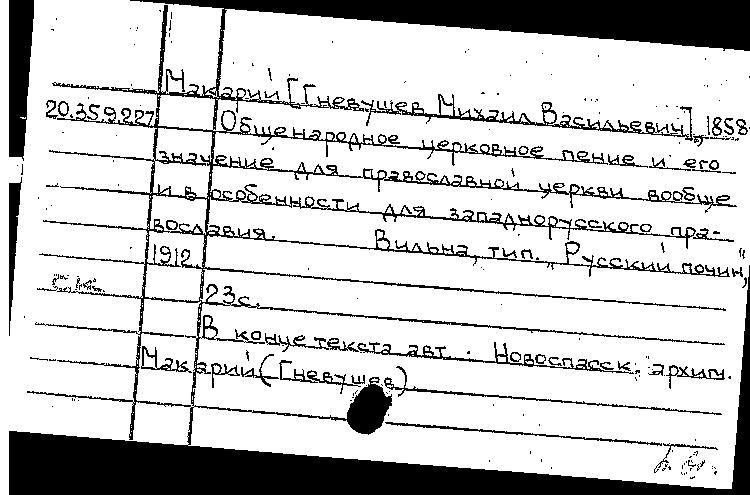 Макарий [Гневушев, Михаил Васильевич], 1858-
20.359.227 Общенародное церковное пение и его
значение для православной церкви вообще
и в особенности для западнорусского пра-
вославия. Вильна, тип. „Русский почин",
1912.
23с.
В конце текста авт.: Новоспасск. архим.
Макарий (Гневушев).